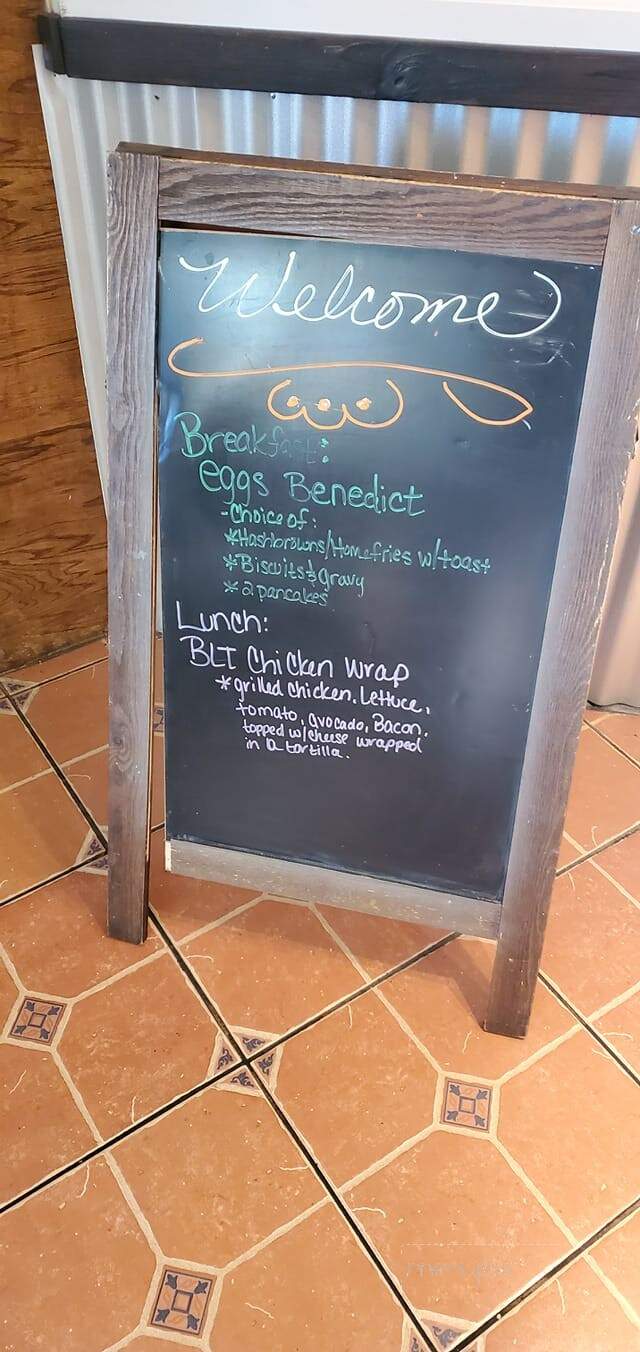 Welcome
Breakfast:
eggs Benedict
-Choice of:
*Hashbrowns/Homefries w/toast
*Biscuits & gravy
*2 pancakes
Lunch:
BLT Chicken Wrap
*grilled chicken, Lettuce,
tomato, avocado, Bacon,
topped w/cheese wrapped
in a tortilla.